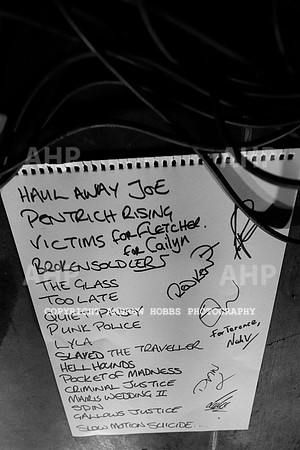 HAUL AWAY JOE
PENTRICH RISING
VICTIMS for FLETCHER.
for Cailyn
BROKEN SOLDIERS
THE GLASS
TOO LATE
QUIET
PUNK POLICE
LYLA
SLAYED THE TRAVELLER
HELL HOUNDS
POCKET OF MADNESS
CRIMINAL JUSTICE
MAIRIS WEDDING II
SPIN
GALLOWS JUSTICE
SLOW MOTION SUICIDE
for Terence,
AHP
AHP
AHP
AHP
COPYRIGHT ANDREW HOBBS PHOTOGRAPHY